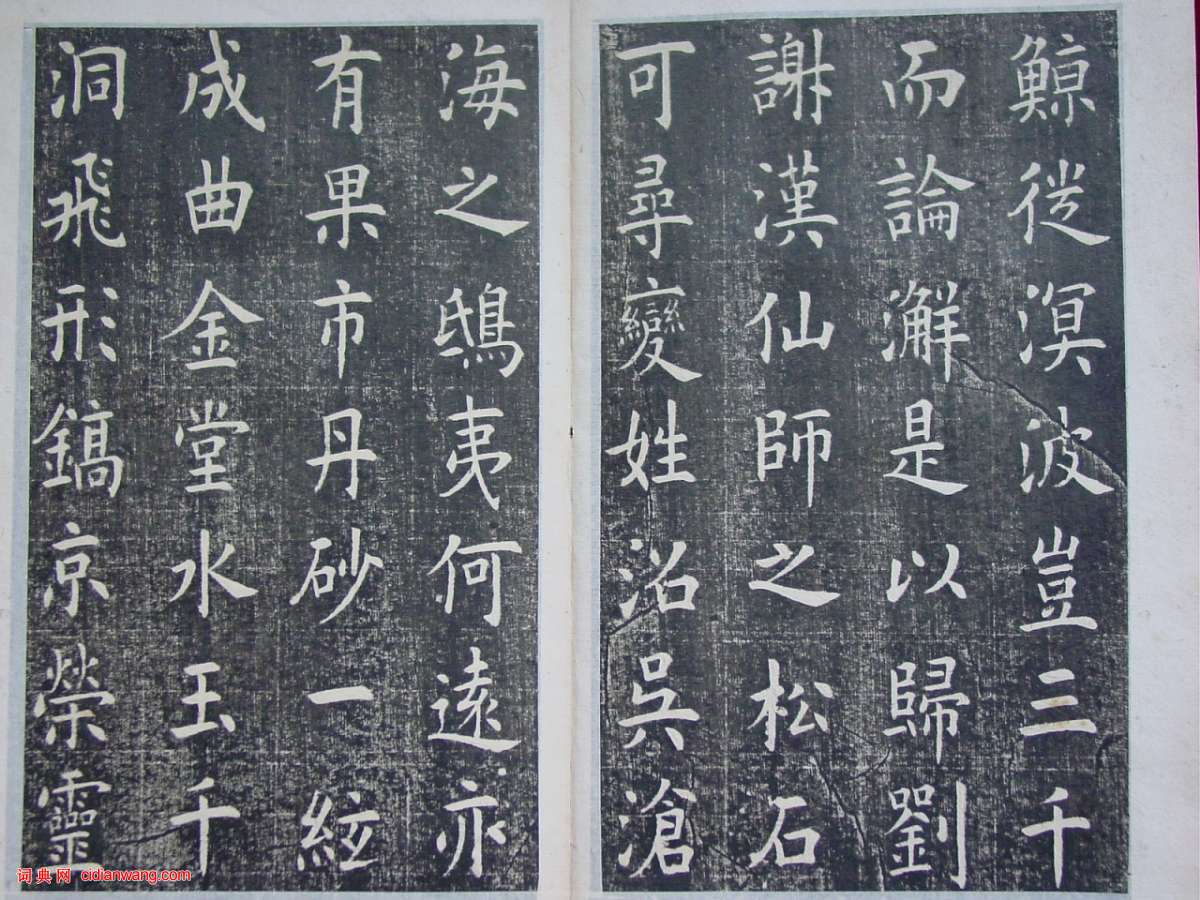 鯨從溟波豈三千
而論澥是以歸劉
謝漢仙師之松石
可尋變姓㳂吳滄
海之鴟夷何遠亦
有果市丹砂一絃
成曲金堂水玉千
洞飛形鎬京榮靈
词典网 cidianwang.com